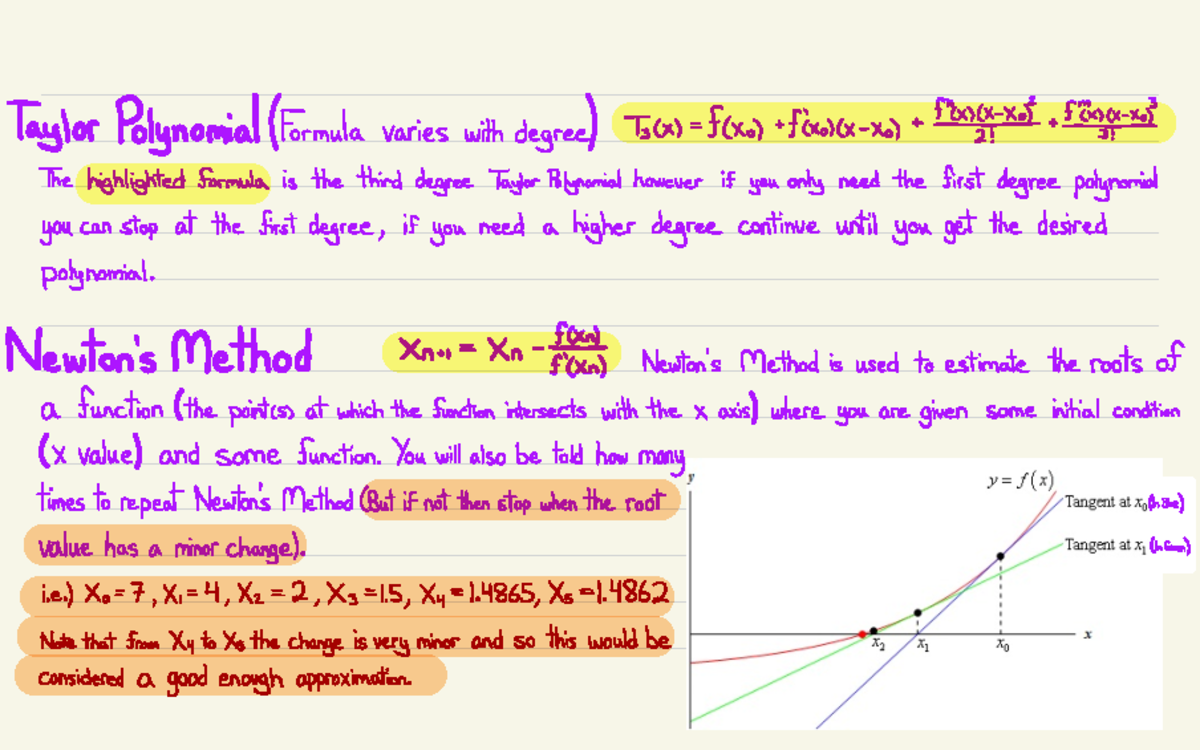 Taylor Polynomial (Formula varies with degree) T₃(x) = f(x₀) + f'(x₀)(x-x₀) + f''(x)(x-x₀)²/2! + f'''(x)(x-x₀)³/3!
The highlighted formula is the third degree Taylor Polynomial however if you only need the first degree polynomial
you can stop at the first degree, if you need a higher degree continue until you get the desired
polynomial.
Newton's Method Xₙ₊₁ = Xₙ - f(xₙ)/f'(xₙ) Newton's Method is used to estimate the roots of
a function (the point(s) at which the function intersects with the x axis) where you are given some initial condition
(x value) and some function. You will also be told how many
times to repeat Newton's Method (But if not then stop when the root
value has a minor change).
i.e.) X₀ = 7, X₁ = 4, X₂ = 2, X₃ = 1.5, X₄ = 1.4865, X₅ = 1.4862
Note that from X₄ to X₅ the change is very minor and so this would be
considered a good enough approximation.
y
y = f(x)
Tangent at x₀ (in Blue)
Tangent at x₁ (in Green)
x
x₂ x₁ x₀